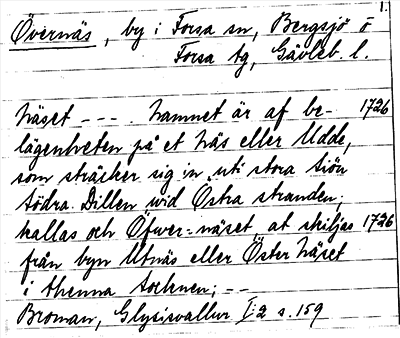 1.
Övernäs, by i Forsa sn, Bergsjö o
Forsa tg, Gävleb. l.
Näset - - - . Namnet är af be- 1726
lägenheten på et Näs eller Udde,
som sträcker sig in uti stora siön
södra Dillen wid Östra stranden;
kallas och Öfwer-näset, at skiljas 1726
från byn Utnäs eller Öster Näset
i thenna Sochnen; - -
Broman, Glysisvallur I:2 s. 159